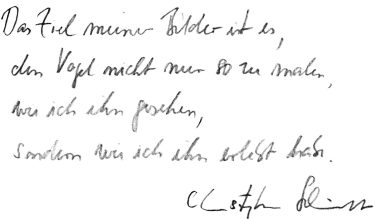 Das Ziel meiner Bilder ist es,
den Vogel nicht nur so zu malen,
wie ich ihn gesehen,
sondern wie ich ihn erlebt habe.
Christoph